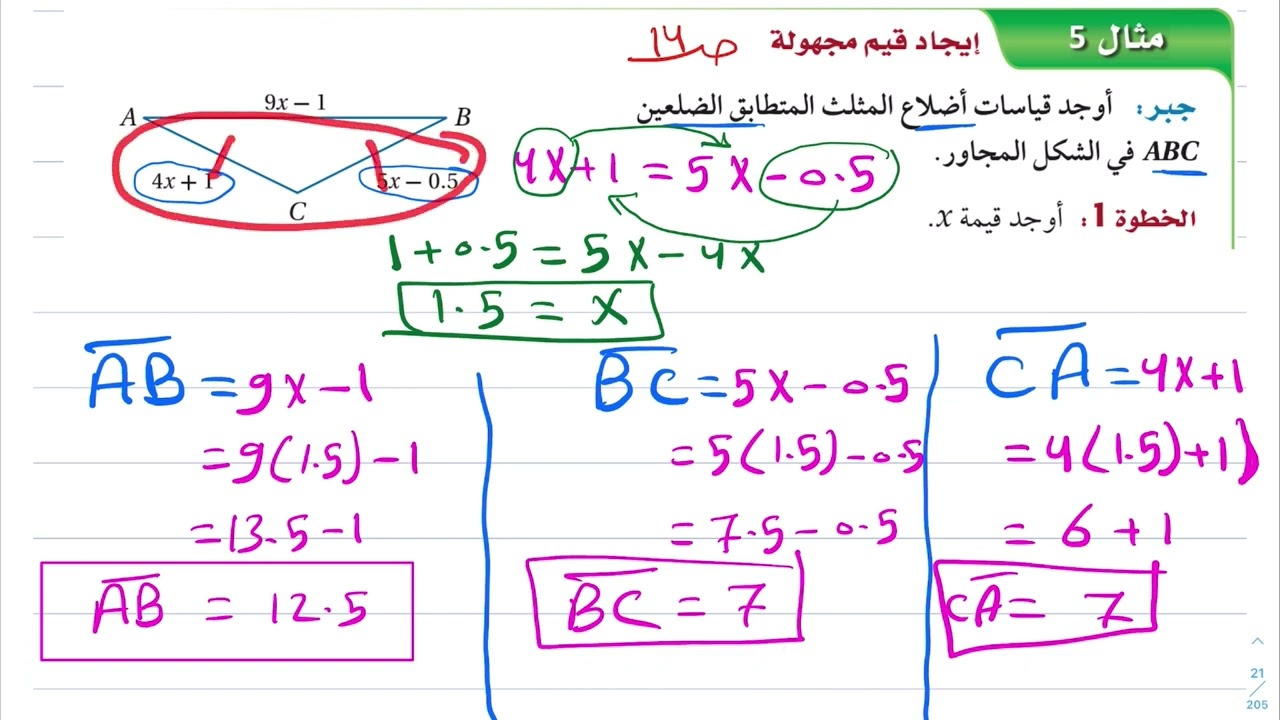 مثال 5
إيجاد قيم مجهولة ص 14
جبر: أوجد قياسات أضلاع المثلث المتطابق الضلعين
ABC في الشكل المجاور.
الخطوة 1: أوجد قيمة x.
9x – 1
A B
4x + 1 5x – 0.5
C
4x+1 = 5x-0.5
1+0.5 = 5x-4x
1.5 = x
AB = 9x-1
= 9(1.5)-1
= 13.5-1
AB = 12.5
BC = 5x-0.5
= 5(1.5)-0.5
= 7.5-0.5
BC = 7
CA = 4x+1
= 4(1.5)+1)
= 6+1
CA = 7
21
205